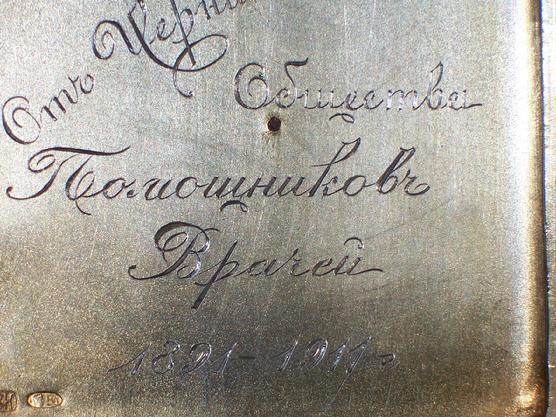 Отъ
Общества
Помощниковъ
Врачей
1891-1911 г